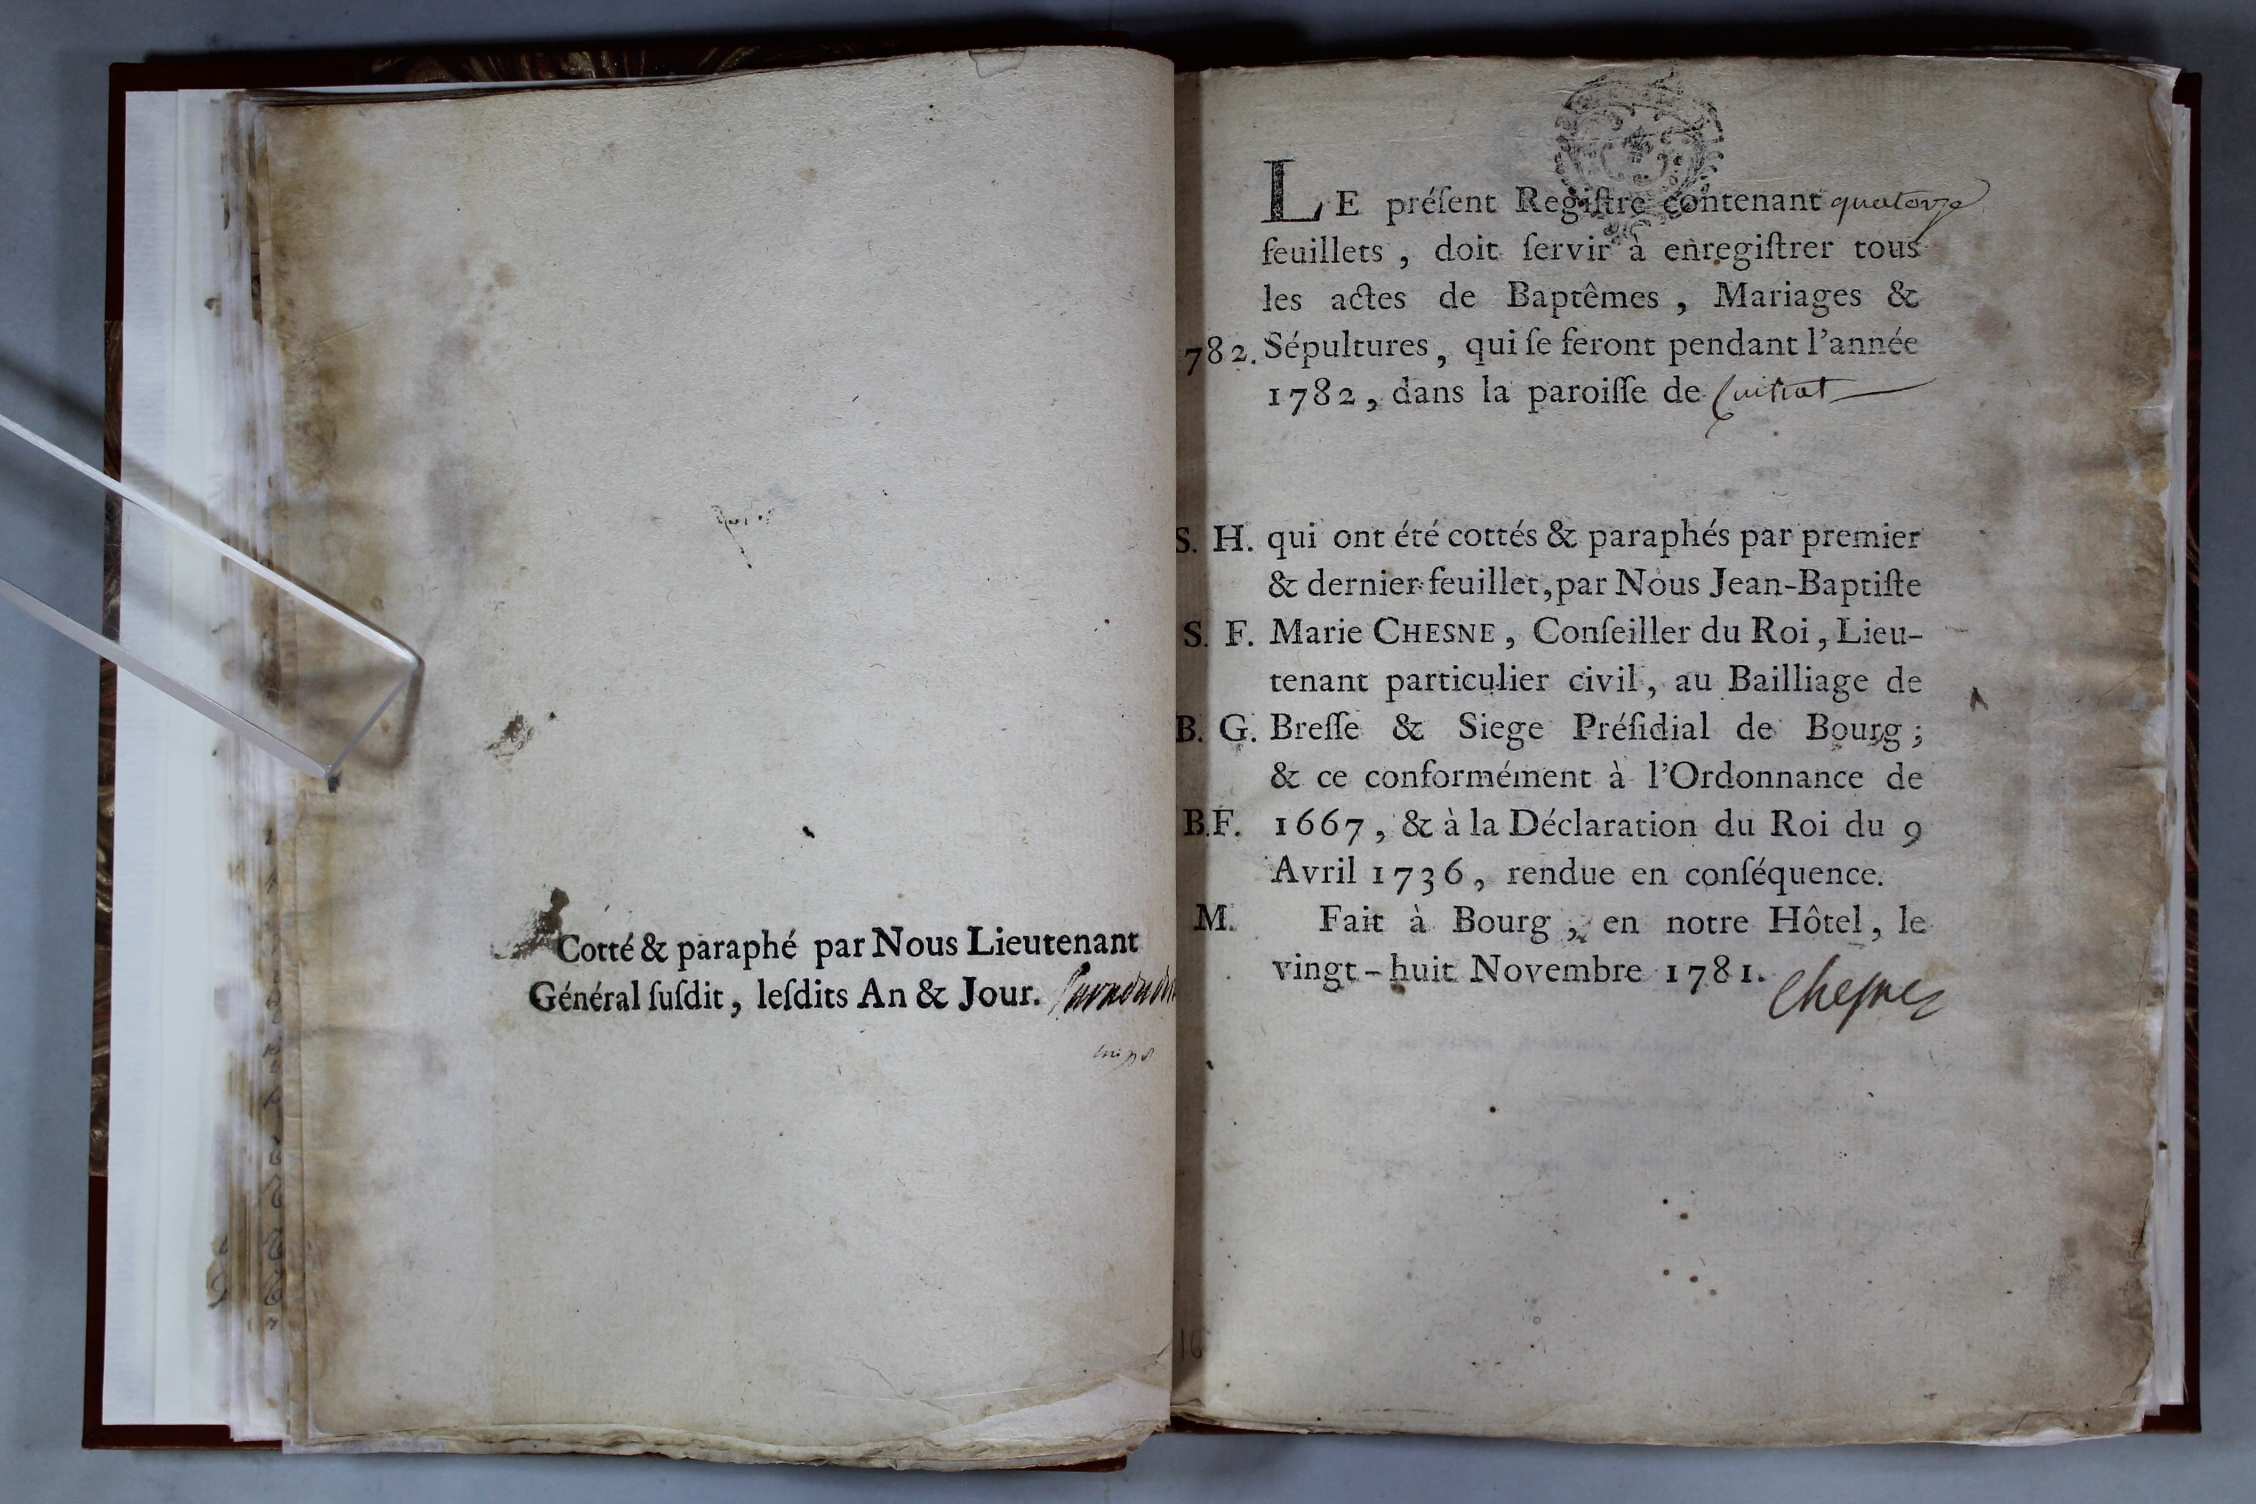 Cotté & paraphé par Nous Lieutenant
Général ſuſdit, leſdits An & Jour.
LE préſent Regiſtre contenant quatorze
feuillets, doit ſervir à enregiſtrer tous
les actes de Baptêmes, Mariages &
782. Sépultures, qui ſe feront pendant l'année
1782, dans la paroiſſe de Cuitiat
S. H. qui ont été cottés & paraphés par premier
& dernier feuillet, par Nous Jean-Baptiſte
S. F. Marie CHESNE, Conſeiller du Roi, Lieu-
tenant particulier civil, au Bailliage de
B. G. Breſſe & Siege Préſidial de Bourg;
& ce conformément à l'Ordonnance de
B.F. 1667, & à la Déclaration du Roi du 9
Avril 1736, rendue en conſéquence.
M. Fait à Bourg, en notre Hôtel, le
vingt-huit Novembre 1781. Chesne
16